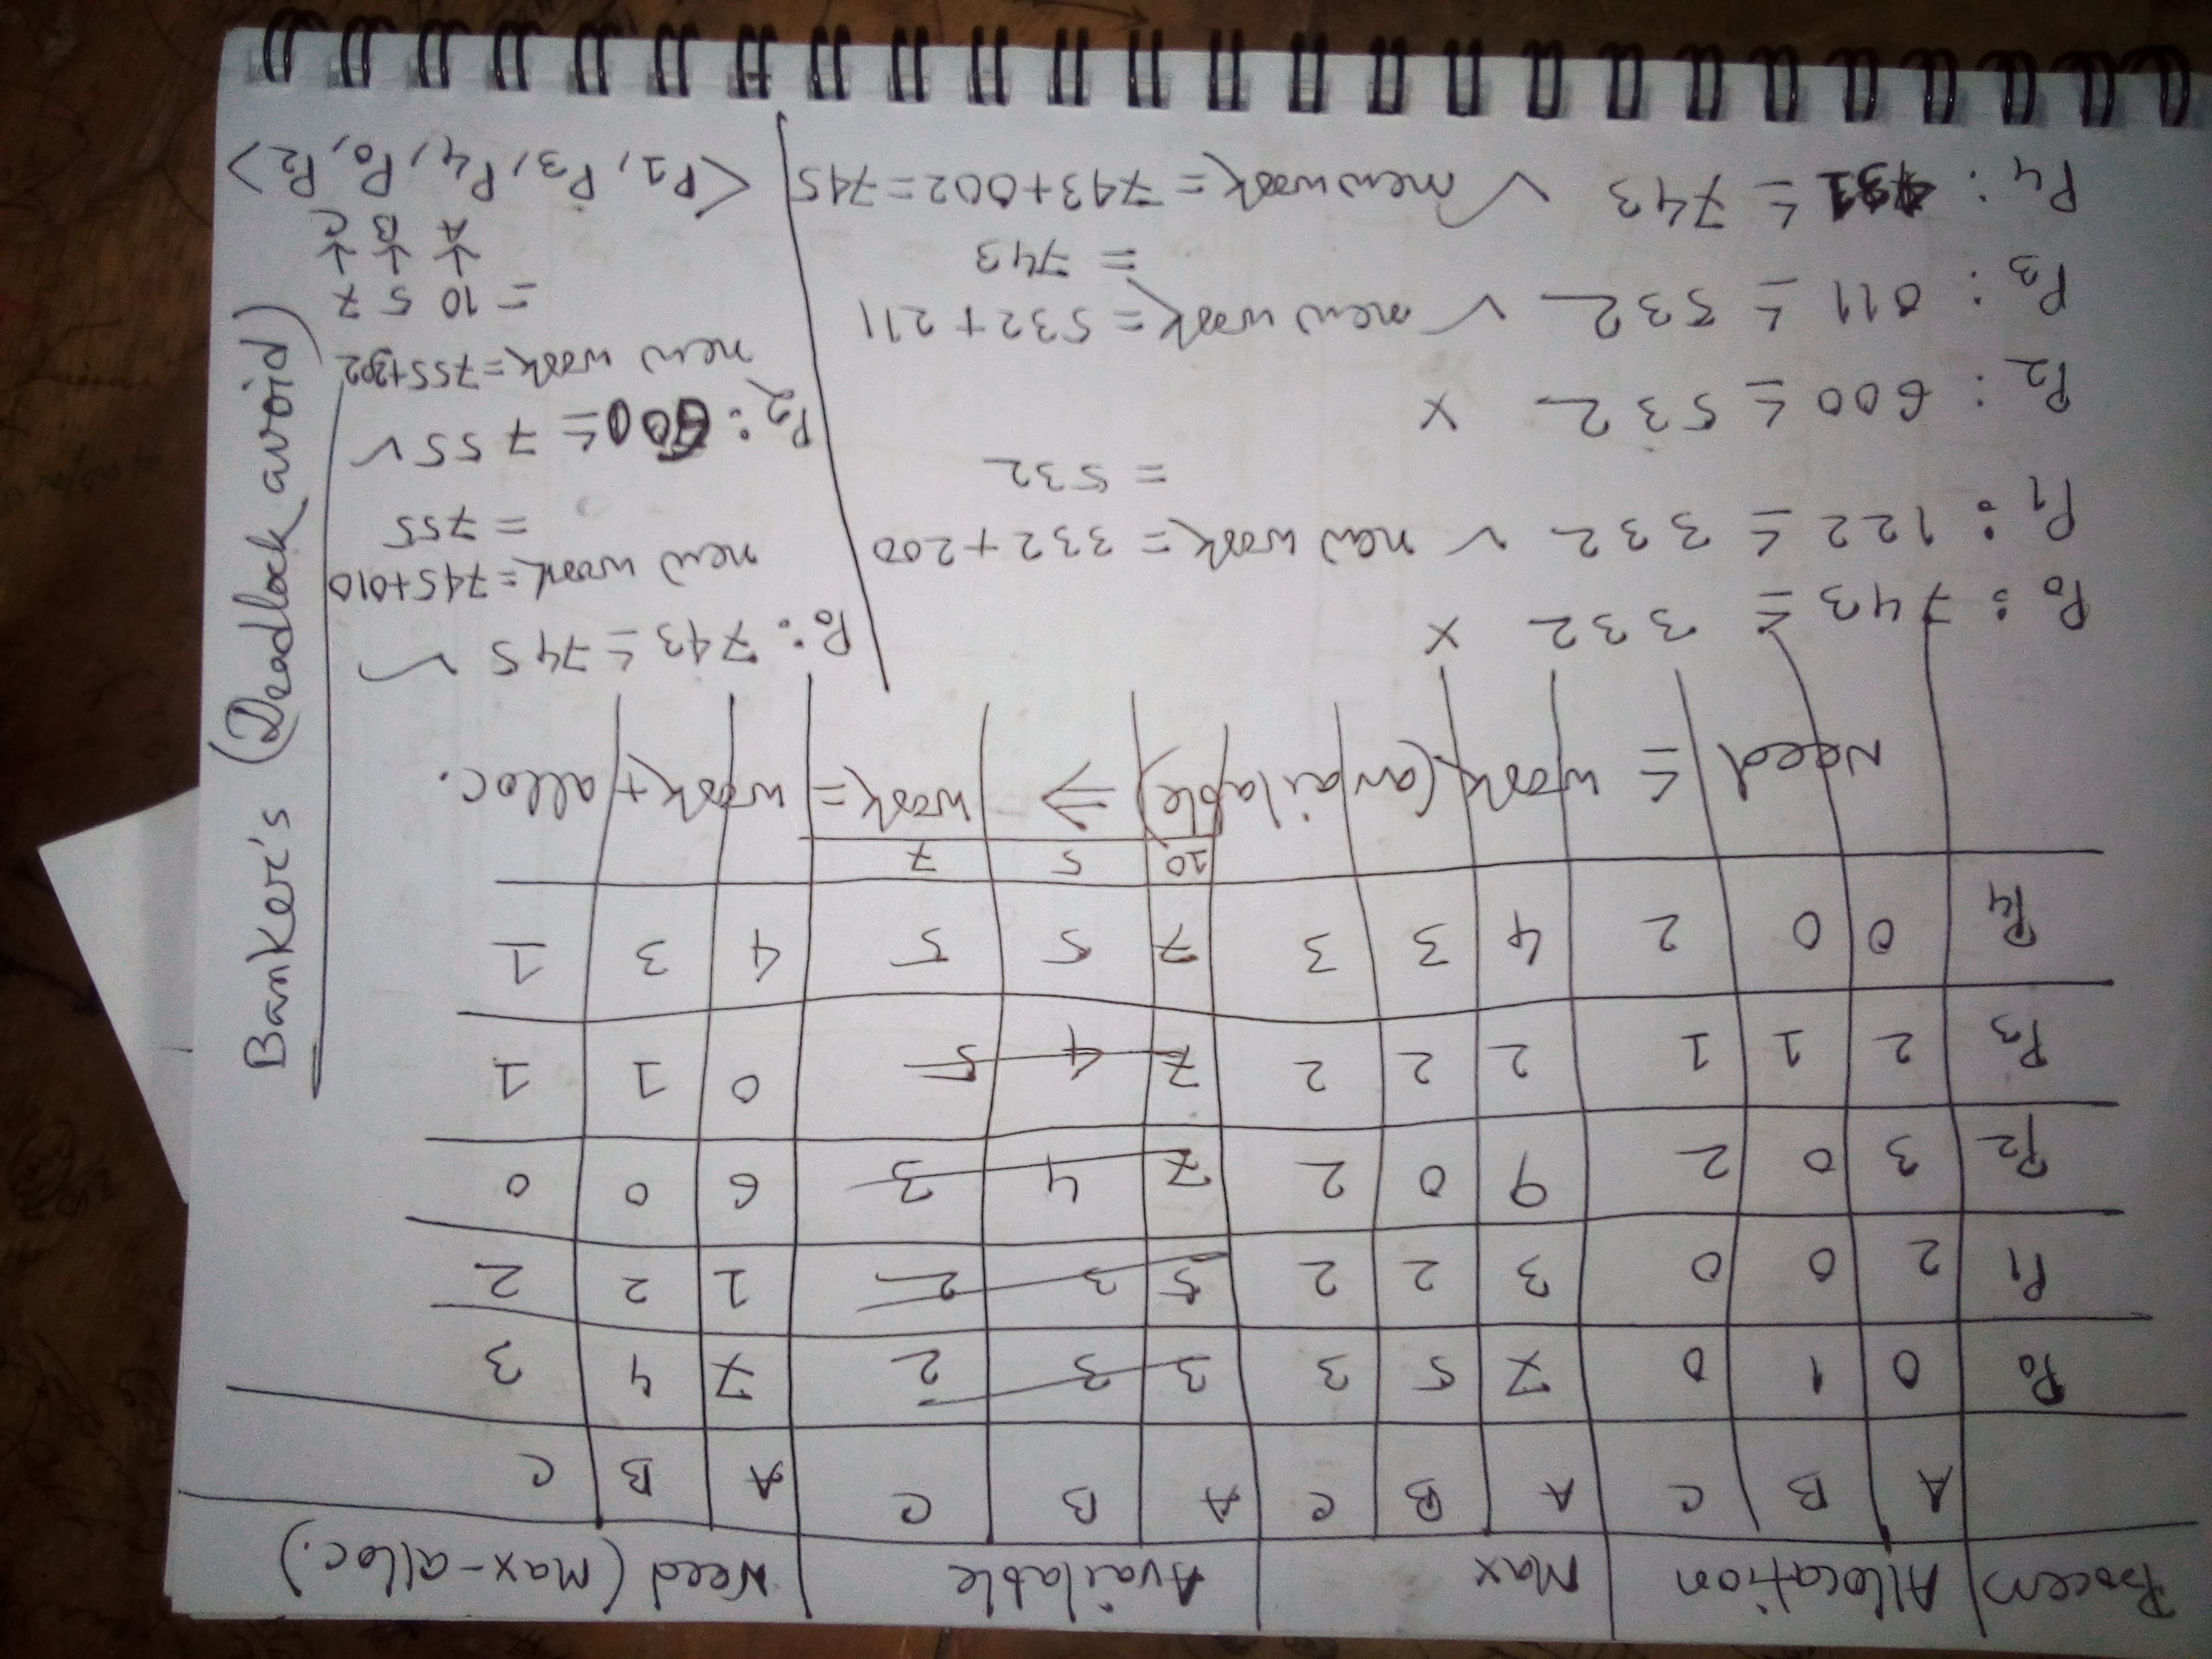 Process Allocation Max Available Need (Max-alloc.)
A B C A B C A B C A B C
P0 0 1 0 7 5 3 3 3 2 7 4 3
P1 2 0 0 3 2 2 5 3 2 1 2 2
P2 3 0 2 9 0 2 7 4 3 6 0 0
P3 2 1 1 2 2 2 7 4 5 0 1 1
P4 0 0 2 4 3 3 7 5 5 4 3 1
10 5 7
Need ≤ work (available) ⇒ work = work + alloc.
P0 : 743 ≤ 332 ×
P1 : 122 ≤ 332 ✓ new work = 332 + 200
= 532
P2 : 600 ≤ 532 ×
P3 : 011 ≤ 532 ✓ new work = 532 + 211
= 743
P4 : 431 ≤ 743 ✓ new work = 743 + 002 = 745
P0 : 743 ≤ 745 ✓
new work = 745 + 010
= 755
P2 : 600 ≤ 755 ✓
new work = 755 + 302
= 10 5 7
↓ ↓ ↓
A B C
<P1, P3, P4, P0, P2>
Banker's (Deadlock avoid)